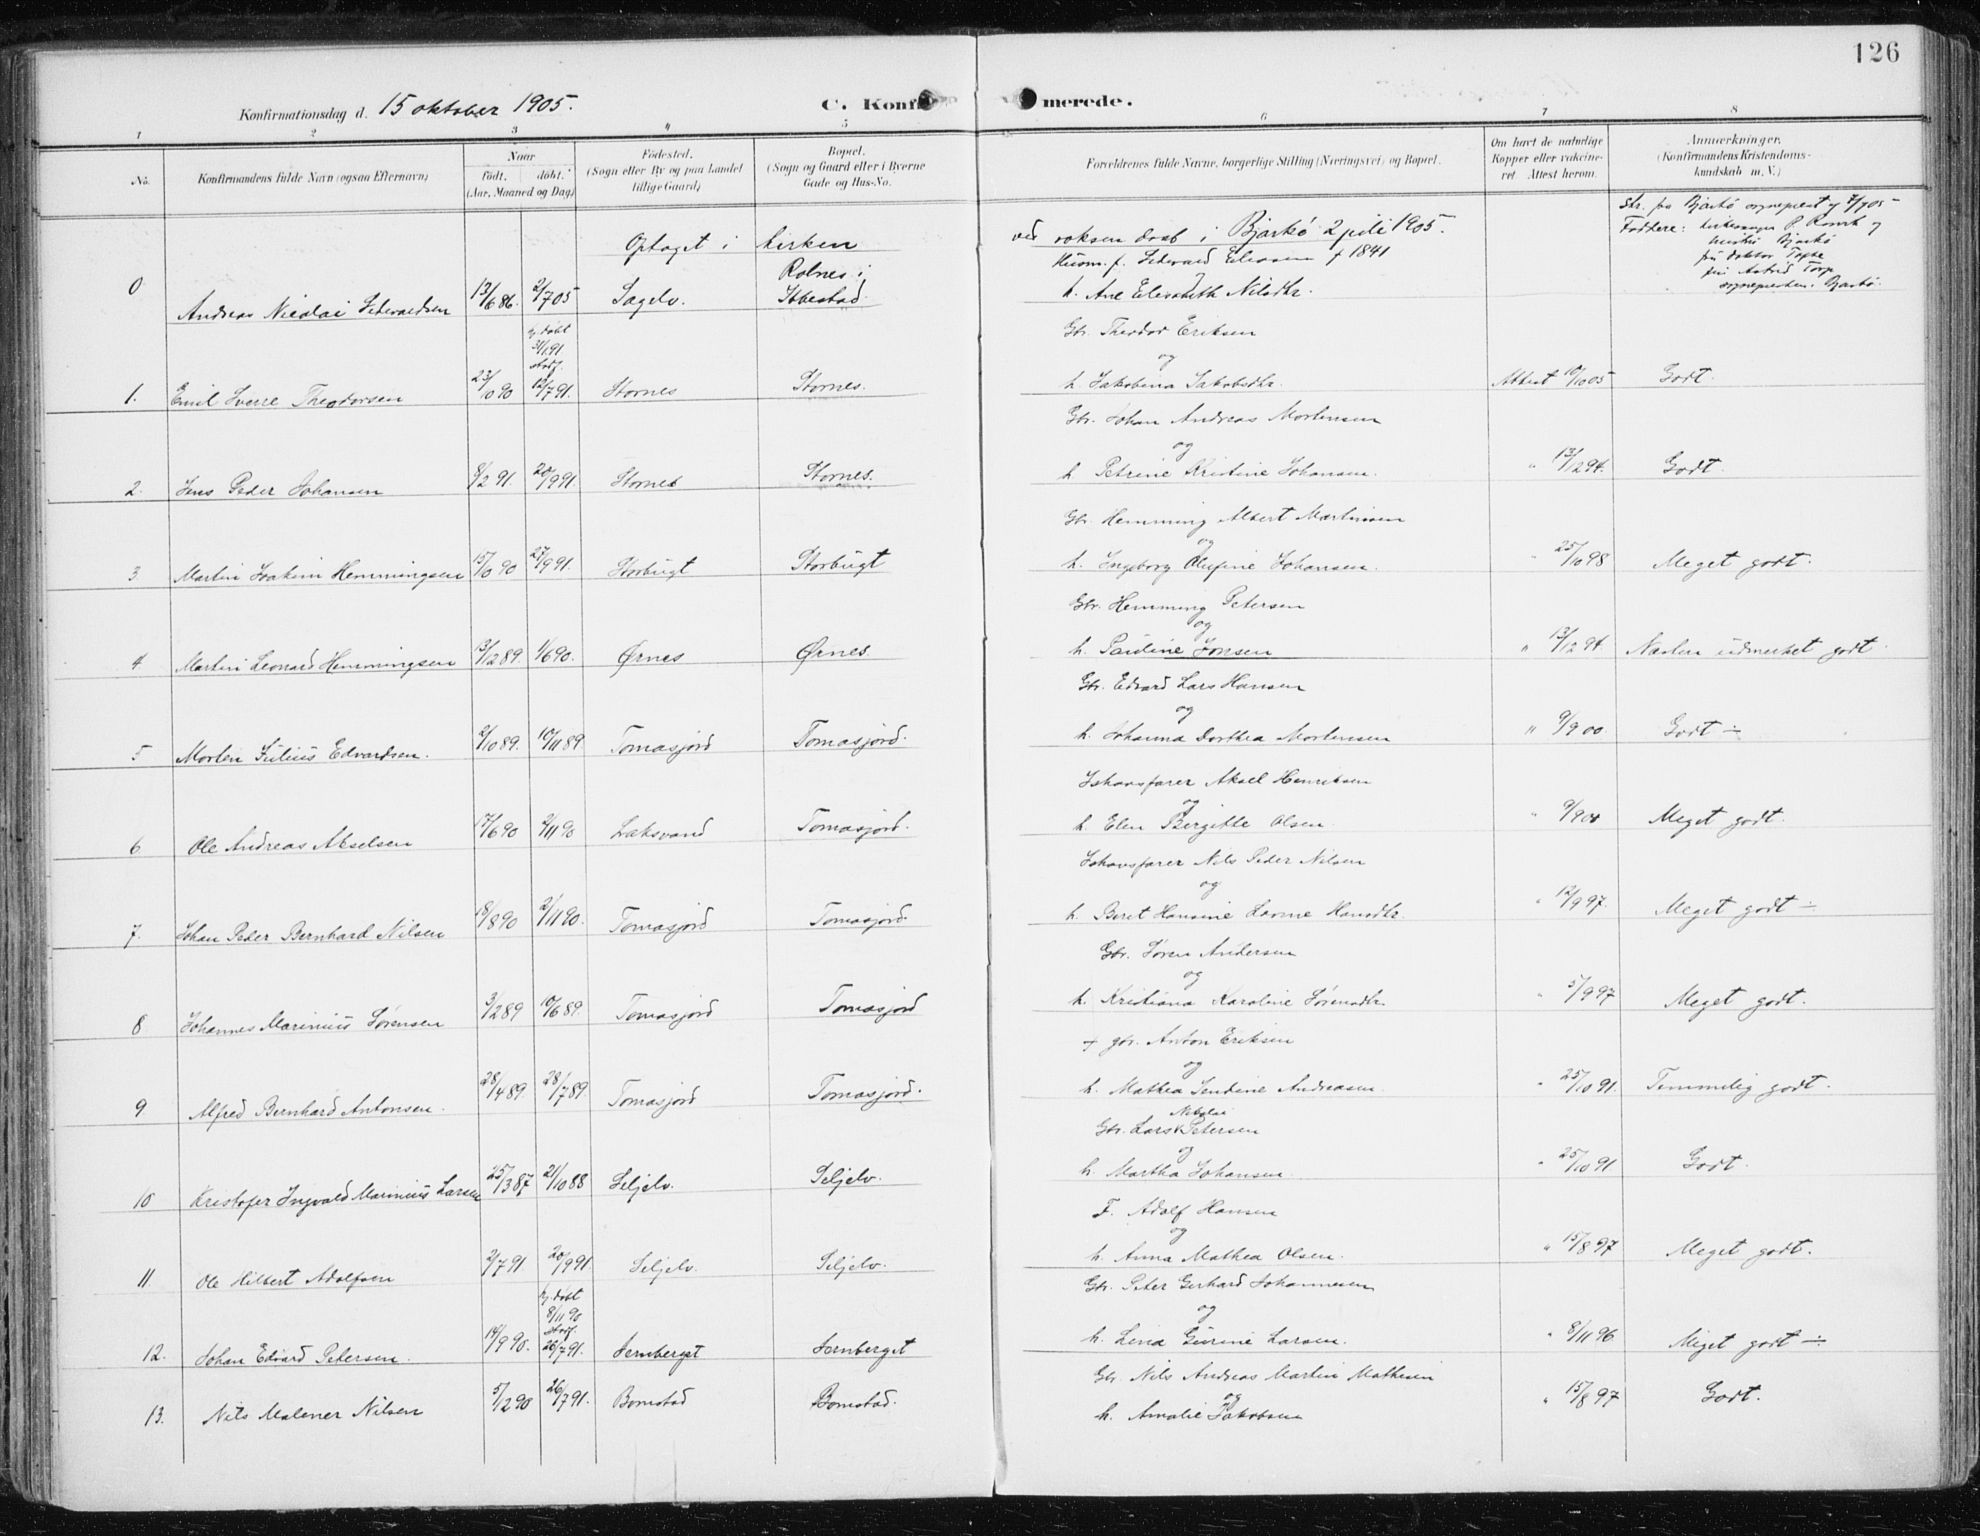 126
Konfirmationsdag d. 15 oktober 1905.
C. Konfi merede.
1 2 3 4 5 6 7 8
No.
Konfirmandens fulde Navn (ogsaa Efternavn)
Naar
født. døbt.
(Aar, Maaned og Dag)
Fødested.
(Sogn eller By og paa Landet
tillige Gaard)
Bopæl.
(Sogn og Gaard eller i Byerne
Gade og Hus-No.
Forældrenes fulde Navne, borgerlige Stilling (Næringsvei) og Bopæl.
Om havt de naturlige
Kopper eller vakcine-
ret Attest herom.
Anmærkninger,
(Konfirmandens Kristendoms-
kundskab m. V.)
Optaget i kirken ved voksen daab i Bjarkø 2 juli 1905.
0 Andreas Nicolai 13/6 86 2/7 05 Sagelv. Rolnes i Ibbestad.
h. Ane Elisabeth Nilsdtr.
Skr. fra Bjarkø sogneprest
Faddere:
Bjarkø
fru doktor
frk Astrid
Bjarkø.
Gbr. Theodor Eriksen
og
1. Emil Sverre Theodorsen 23/10 90 hj. døbt 31/1 91. stadf. 12/7 91. Stornes Stornes. h. Jakobina Jakobsdtr. Attest 10/10 05 Godt.
Gbr. Johan Andreas Mortensen
og
2. Jens Peder Johansen 8/2 91 20/9 91. Stornes Stornes. h. Petrine Kristine Johansen. " 13/12 94. Godt.
Gbr. Hemming Albert Martinsen
og
3. Martin Joakim Hemmingsen 15/10 90 27/9 91. Storbugt Storbugt h. Ingeborg Olufine Johansen. " 25/10 98 Meget godt.
Gbr. Hemming Petersen
og
4 Martin Leonard Hemmingsen 13/12 89. 1/6 90. Ørnes Ørnes. h. Pauline Jonsen " 13/12 94. Næsten udmerket godt.
Gbr. Edvard Lars Hansen
og
5 Morten Julius Edvardsen. 2/10 89. 10/11 89. Tomasjord Tomasjord. h. Johanna Dorthea Mortensen " 9/9 00 Godt ÷
Ishavsfarer Aksel Henriksen
og
6 Ole Andreas Akselsen 17/6 90 2/11 90 Laksvand Tomasjord. h. Elen Birgitte Olsen. " 9/9 00 Meget godt.
Ishavsfarer Nils Peder Nilsen
og
7. Johan Peder Bernhard Nilsen 18/8 90 2/11 90. Tomasjord Tomasjord. h. Beret Hansine Hansdtr. " 12/9 97. Meget godt ÷
Gbr. Søren Andersen
og
8 Johannes Marinius Sørensen 3/2 89 10/6 89. Tomasjord Tomasjord h. Kristiana Karoline Sørensdtr. " 5/9 97 Meget godt.
+ gbr. Anton Eriksen
og
9. Alfred Bernhard Antonsen. 28/4 89. 28/7 89. Tomasjord Tomasjord. h. Mathea Andreasen. " 25/10 91. Temmelig godt.
Nikolai
Gbr. Lars Petersen
og
10 Kristofer Ingvald Marinius Larsen 25/3 87 21/10 88 Seljelv. Seljelv. h. Martha Johansen. " 25/10 91. Godt.
F. Adolf Hansen
og
11. Ole Hilbert Adolfsen 2/7 91 20/9 91. Seljelv. Seljelv. h. Anna Mathea Olsen. " 15/8 97 Meget godt.
Gbr. Peter Gerhard Johannesen
og
12. Johan Edvard Petersen. 14/9 90. hj. døbt 8/11 90 stadf. 26/7 91. Jernberget Jernberget h. Lina Gurine Larsen. " 8/11 96 Meget godt ÷
Gbr. Nils Andreas Martin Mathisen
og
13. Nils Malener Nilsen 5/12 90 26/7 91. Bomstad Bomstad. h. Amalie Jakobsen " 15/8 97 Godt.